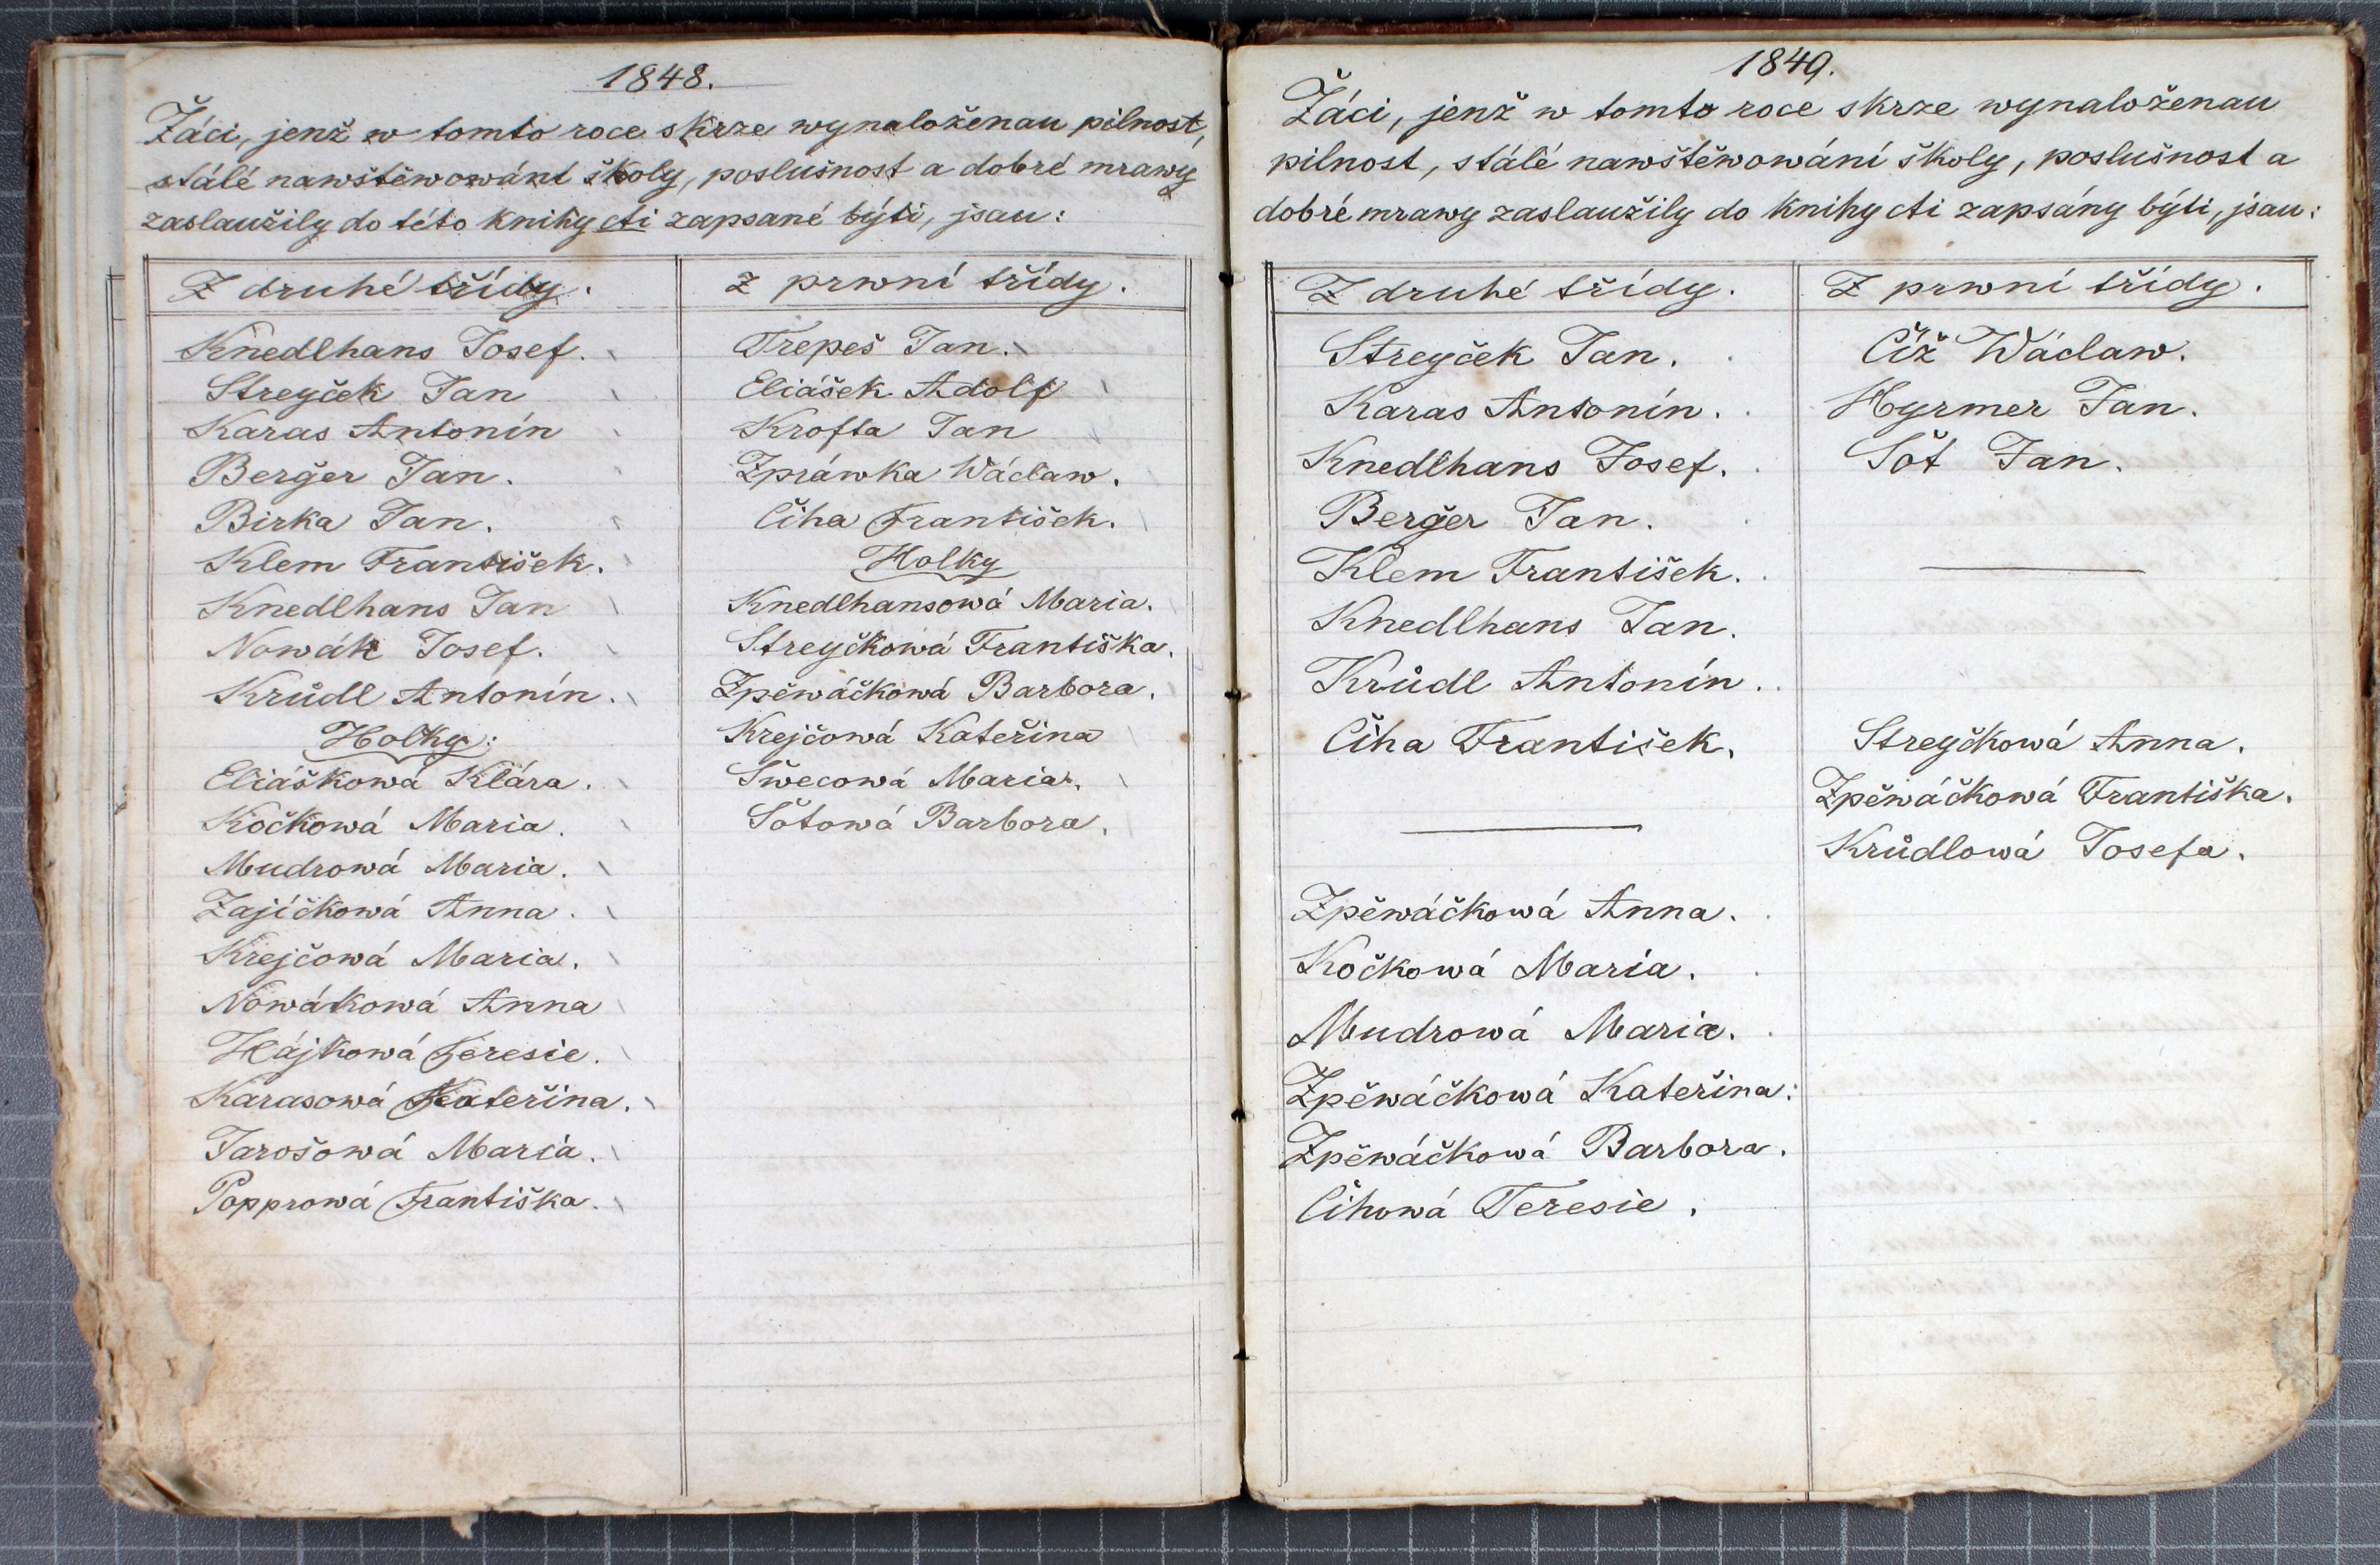 1848.
Žáci, jenž w tomto roce skrze wynaloženau pilnost,
stálé nawštěwowání školy, poslušnost a dobré mrawy
zaslaužily do této knihy cti zapsané býti, jsau:
Z druhé třídy.
Knedlhans Josef.
Streyček Jan
Karas Antonín
Berger Jan.
Birka Jan.
Klem František.
Knedlhans Jan
Nowák Josef.
Krůdl Antonín.
Holky:
Eliáškowá Klára.
Kočkowá Maria.
Mudrowá Maria.
Zajíčkowá Anna.
Krejčowá Maria.
Nowákowá Anna
Hájkowá Teresie.
Karasowá Kateřina.
Jarošowá Maria.
Popprowá Františka.
z prwní třídy.
Trepeš Jan.
Eliášek Adolf
Krofta Jan
Zpráwka Wáclaw.
Čiha František.
Holky
Knedlhansowá Maria.
Streyčkowá Františka.
Zpěwáčkowá Barbora.
Krejčowá Kateřina
Šwecowá Maria.
Šótowá Barbora.
1849.
Žáci, jenž w tomto roce skrze wynaloženau
pilnost, stálé nawštěwowání školy, poslušnost a
dobré mrawy zaslaužily do knihy cti zapsány býti, jsau:
Z druhé třídy.
Streyček Jan.
Karas Antonín.
Knedlhans Josef.
Berger Jan.
Klem František.
Knedlhans Jan.
Krůdl Antonín.
Čiha František.
Zpěwáčkowá Anna.
Kočkowá Maria.
Mudrowá Maria.
Zpěwáčkowá Kateřina.
Zpěwáčkowá Barbora.
Čihowá Teresie.
Z prwní třídy.
Číž Wáclaw.
Hyrmer Jan.
Šót Jan.
Streyčkowá Anna.
Zpěwáčkowá Františka.
Krůdlowá Josefa.